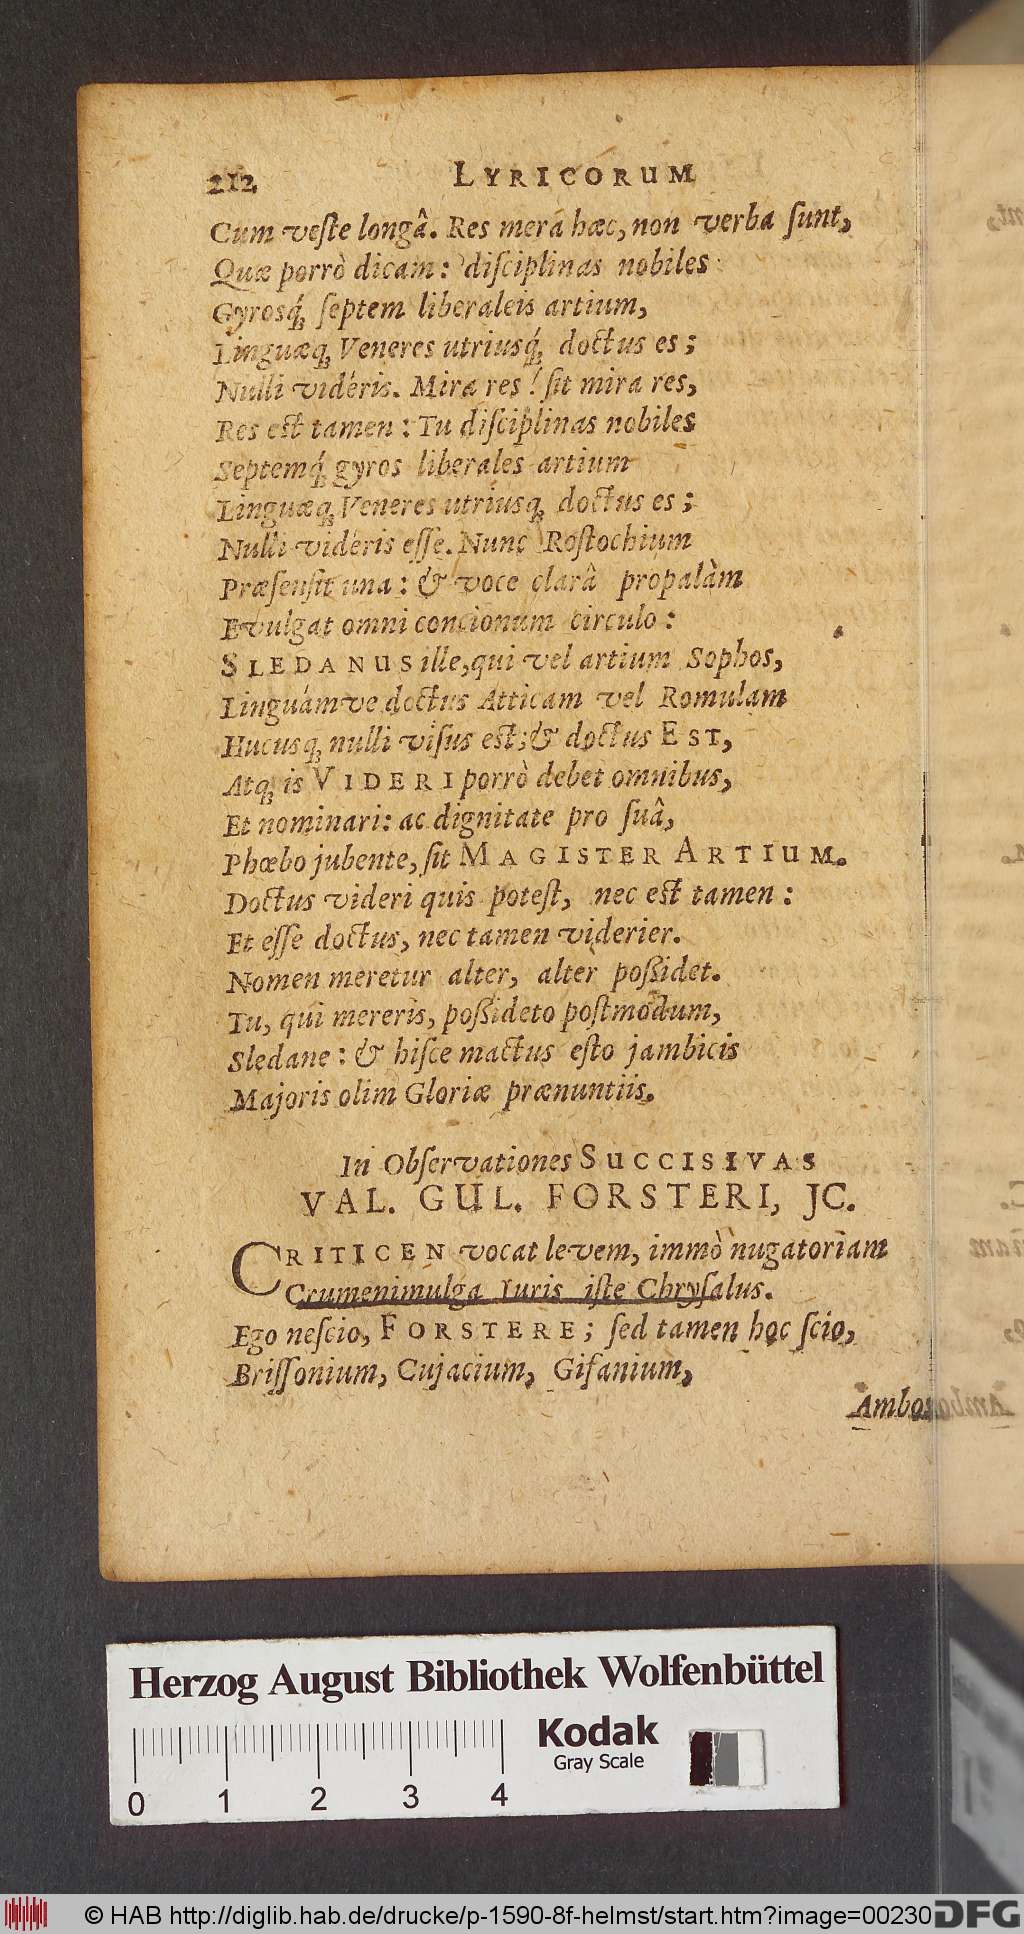 212 LYRICORUM
Cum veſte longâ. Res mera hæc, non verba ſunt,
Quæ porrò dicam: diſciplinas nobiles
Gyrosq́; ſeptem liberaleis artium,
Linguæq; Veneres utriusq́; doctus es;
Nulli vidéris. Mira res! ſit mira res,
Res est tamen: Tu diſciplinas nobiles
Septemq́; gyros liberales artium
Linguæq; Veneres utriusq; doctus es;
Nulli vidéris eſſe. Nunc Roſtochium
Præſenſit una: & voce clarâ propalàm
Evulgat omni concionum circulo:
SLEDANUS ille, qui vel artium Sophos,
Linguámve doctus Atticam vel Romulam
Hucusq; nulli viſus est; & doctus EST,
Atq; is VIDERI porrò debet omnibus,
Et nominari: ac dignitate pro ſuâ,
Phœbo jubente, ſit MAGISTER ARTIUM.
Doctus videri quis poteſt, nec est tamen:
Et eſſe doctus, nec tamen viderier.
Nomen meretur alter, alter poßidet.
Tu, qui mereris, poßideto poſtmodum,
Sledane: & hiſce mactus eſto jambicis
Majoris olim Gloriæ prænuntiis.
In Obſervationes SUCCISIVAS
VAL. GUL. FORSTERI, JC.
CRITICEN vocat levem, immò nugatoriam
Crumenimulga Iuris iſte Chryſalus.
Ego neſcio, FORSTERE; ſed tamen hoc ſcio,
Briſſonium, Cujacium, Gifanium,
Ambos
Herzog August Bibliothek Wolfenbüttel
Kodak
Gray Scale
0 1 2 3 4
© HAB http://diglib.hab.de/drucke/p-1590-8f-helmst/start.htm?image=00230 DFG